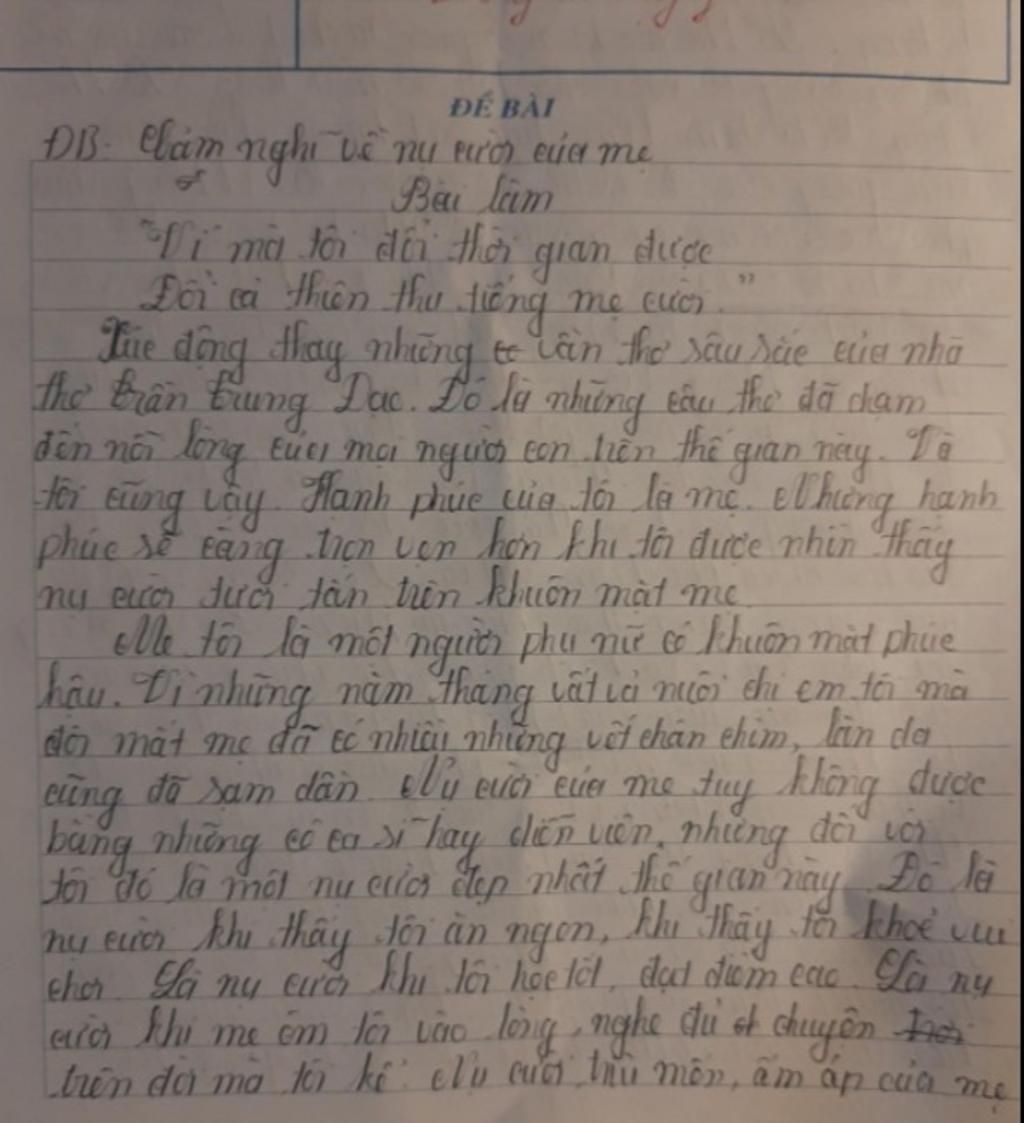 ĐỀ BÀI
ĐB: Cảm nghĩ về nụ cười của mẹ
Bài làm
"Ví mà tôi đổi thời gian được
Đổi cả thiên thu tiếng mẹ cười."
Xúc động thay những vần thơ sâu sắc của nhà
thơ Trần Trung Đạc. Đó là những câu thơ đã chạm
đến nỗi lòng của mọi người con trên thế gian này. Và
tôi cũng vậy. Hạnh phúc của tôi là mẹ. Nhưng hạnh
phúc sẽ càng trọn vẹn hơn khi tôi được nhìn thấy
nụ cười tươi tắn trên khuôn mặt mẹ
Mẹ tôi là một người phụ nữ có khuôn mặt phúc
hậu. Vì những năm tháng vất vả nuôi chị em tôi mà
đôi mắt mẹ đã có nhiều những vết chân chim, làn da
cũng đã sạm dần Nụ cười của mẹ tuy không được
bằng những cô ca sĩ hay diễn viên, nhưng đối với
tôi đó là một nụ cười đẹp nhất thế gian này. Đó là
nụ cười khi thấy tôi ăn ngon, khi thấy tôi khoẻ vui
chơi. Là nụ cười khi tôi học tốt, đạt điểm cao. Là nụ
cười khi mẹ ôm tôi vào lòng, nghe đủ chuyện
trên đời mà tôi kể. Nụ cười trìu mến, ấm áp của mẹ